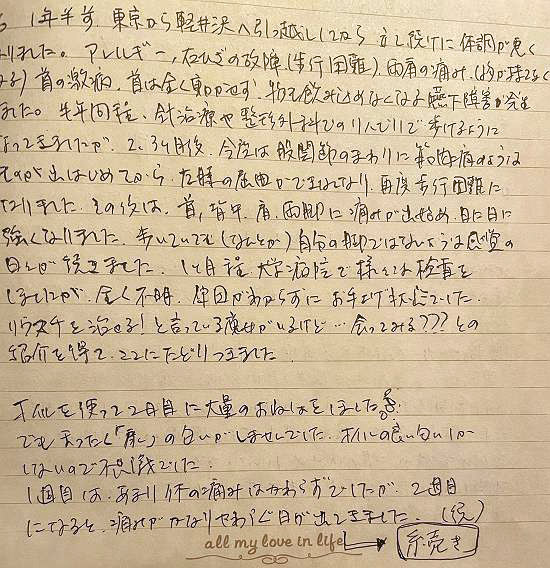 1年半前、東京から軽井沢へ引っ越ししてから 立て続けに体調が悪く
なりました。アレルギー、左ひざの故障(歩行困難)、両肩の痛み、(物が持てなく
なる) 首の激痛、首は全く動かせず、物も飲み込めなくなる嚥下障害が出
ました。半年間程、針治療や整形外科でのリハビリで歩けるように
なってきましたが、2、3ヶ月後、今度は股関節のまわりに筋肉痛のような
ものが出はじめてから、左膝の屈曲ができなくなり、再度歩行困難に
なりました。その後は、首、背中、肩、両脚に痛みが出始め、日に日に
強くなりました。歩いていても(なんとか)自分の脚ではないような感覚の
日々が続きました。1ヶ月程 大学病院で様々な検査を
しましたが、全く不明、原因がわからずにお手上げ状態でした。
リウマチを治せる!と言っている がいるけど…会ってみる???との
紹介を得て、ここにたどりつきました
オイルを使って2日目に大量のおねしょをしました。
でもまったく「尿」の匂いがしませんでした。オイルの良い匂いしか
しないので不思議でした
1週目は、あまり体の痛みはかわらずでしたが、2週目
になると、痛みがかなりやわらぐ日が出てきました。(続)
all my love in life
続き